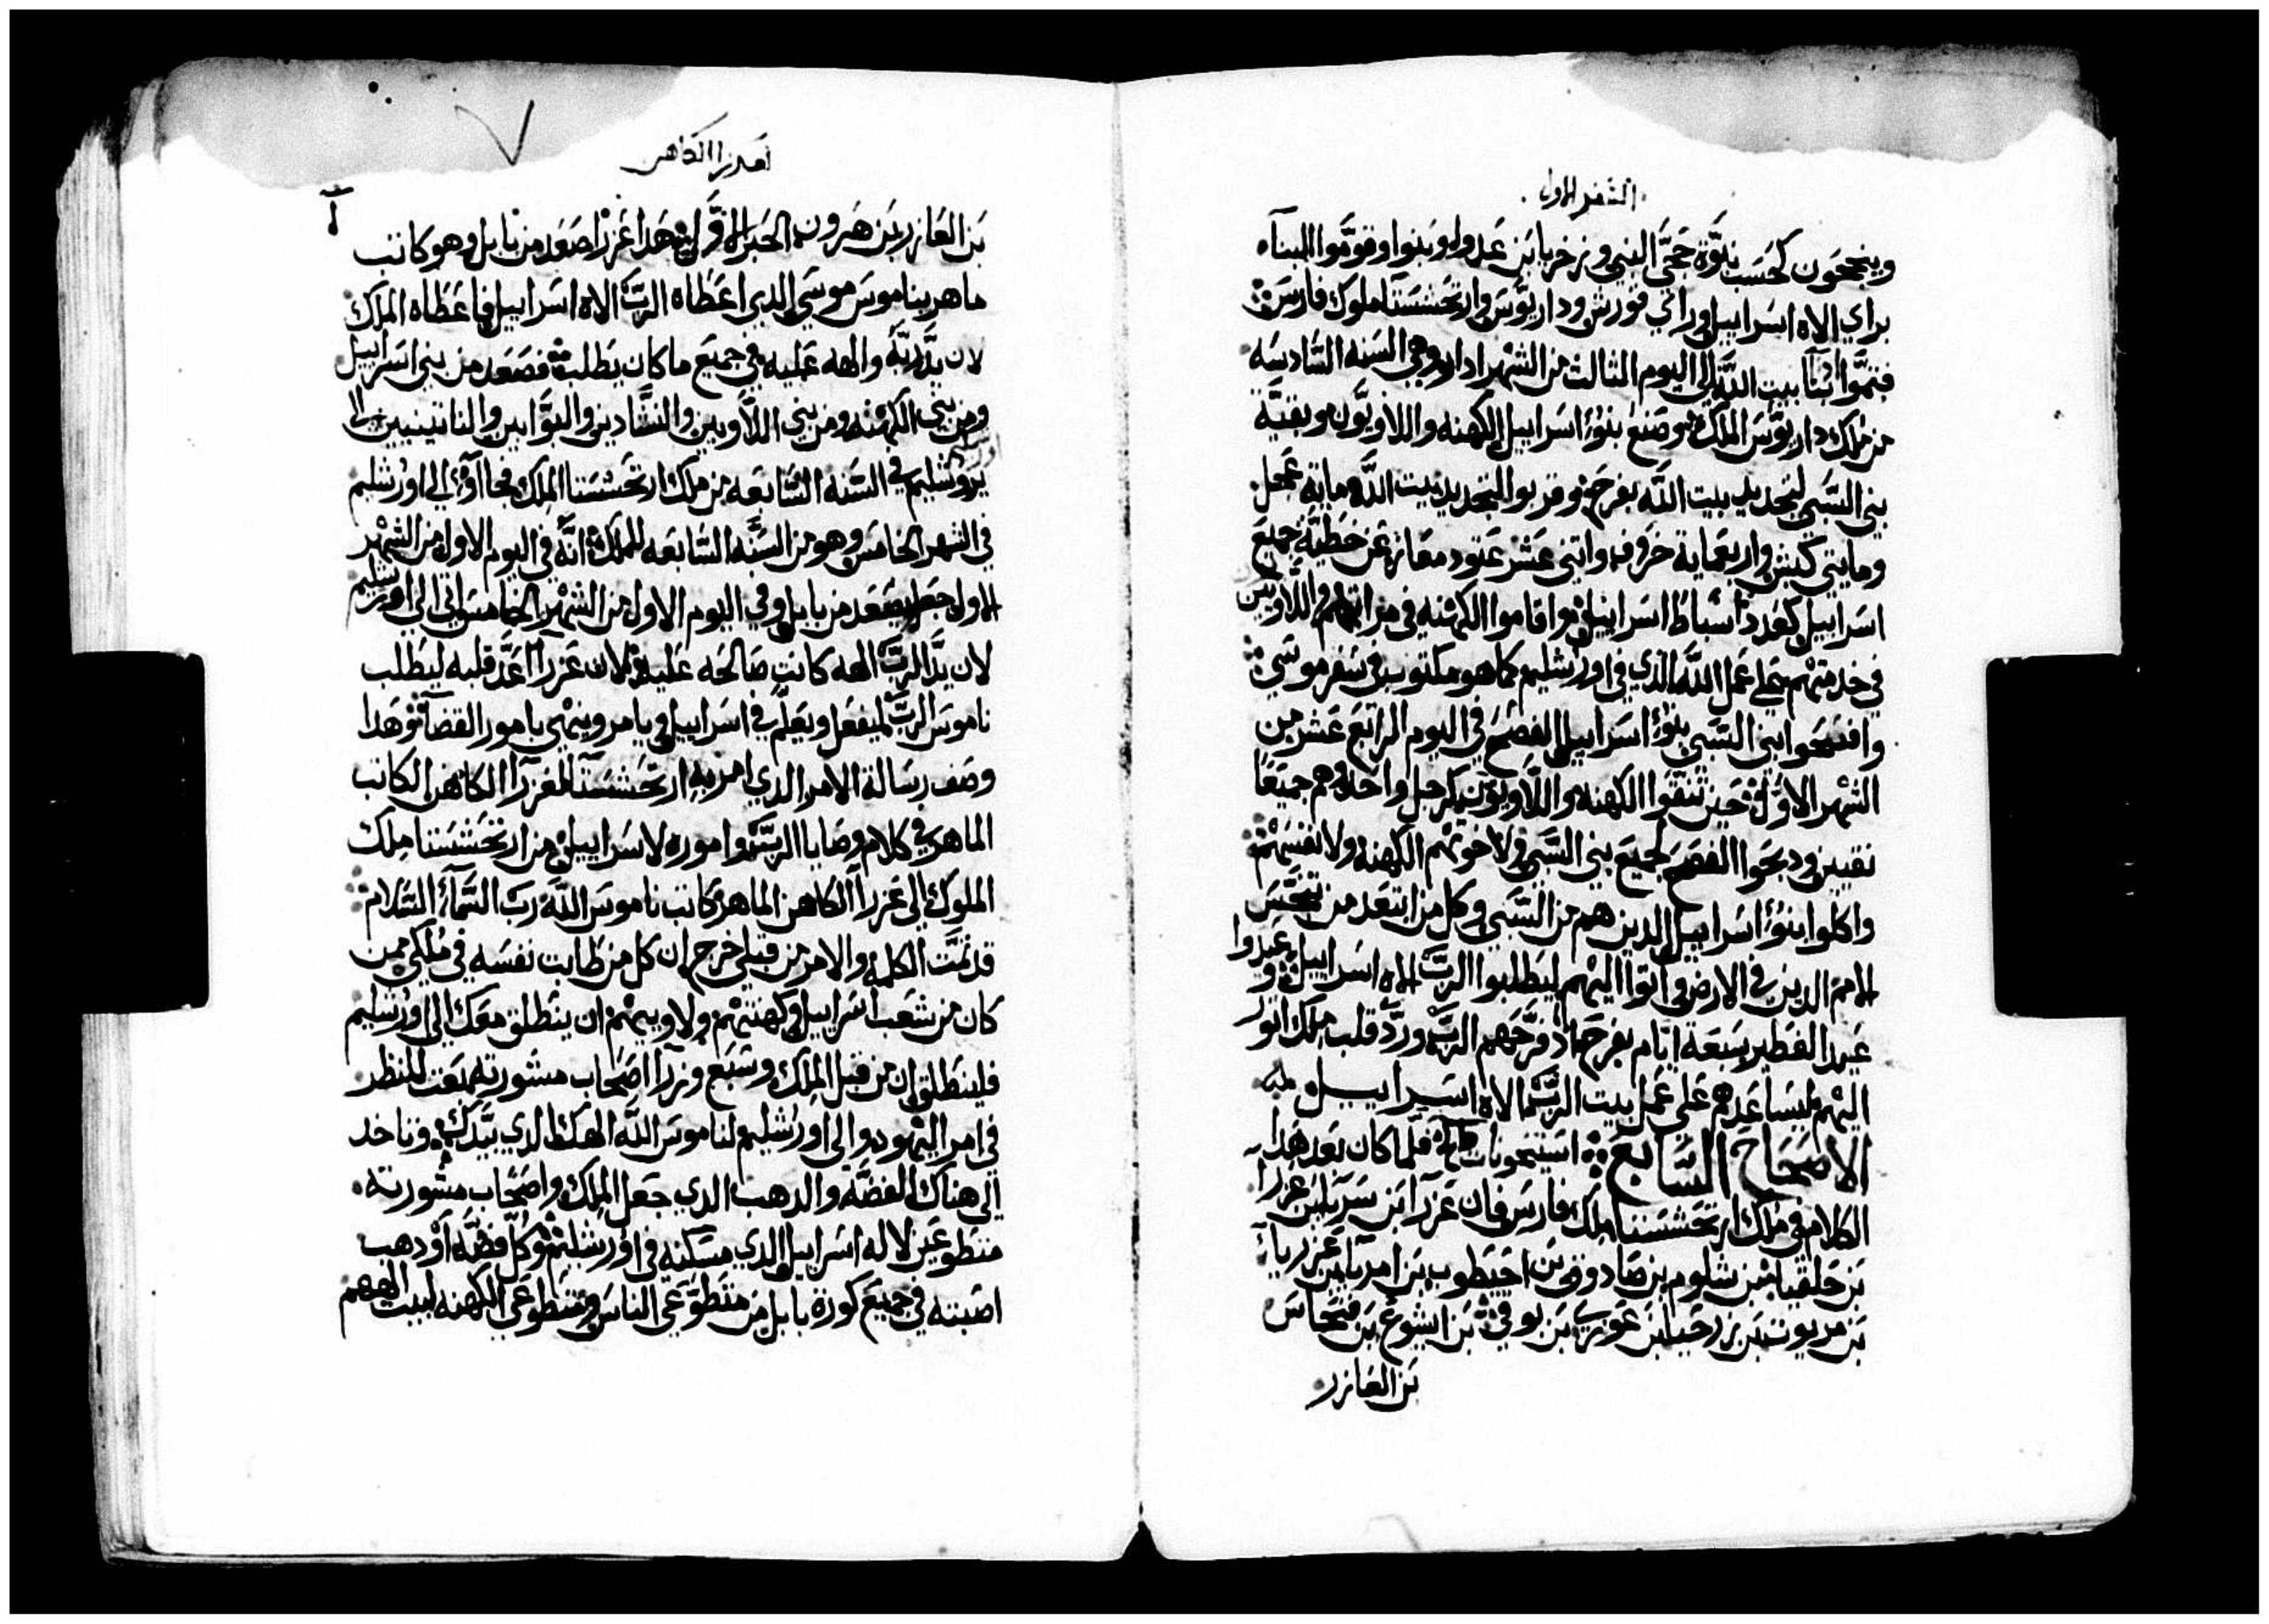 السفر الاول
وينجحون كحسب نبوّة حجّى النبي وزخريا بن عدوا وبنوا وقوّموا البناء
براي الاه اسراييل وراي قورش وداريوس وارتحششتا ملوك فارس
فتمّوا بنا بيت اللّه الى اليوم الثالث من الشهر ادار وهي السنه السّادسه
من ملك داريوس الملك وصنع بنوا اسراييل الكهنه واللاويّون وبقيّة
بني السّبي لتجديد بيت اللّه بفرح وقربوا لتجديد بيت اللّه ماية عجل
ومايتي كبش واربعماية خروف واتنى عشر عتود معاز عن خطيّة جميع
اسراييل كعدد اسباط اسراييل واقاموا الكهنه في مراتبهم واللاويين
في خدمتهم على عمل اللّه الذي في اورشليم كما هو مكتوب في سفر موسى
وافتصحوا بنى السّبي بنوا اسراييل الفصح في اليوم الرابع عشر من
الشهر الاوّل حين تنقوا الكهنه واللاويون كرجل واحد وهم جميعًا
نقيين ودبحوا الفصح لجميع بني السّبي ولاخوتهم الكهنه ولانفسهم
واكلوا بنوا اسراييل الدين هم من السّبي وكل من ابتعد من نجس
الامم الدين في الارض واتوا اليهم ليطلبوا الربّ الاه اسراييل وعيدوا
عيد الفطير سبعة ايام بفرح اد فرّحهم الربّ وردّ قلب ملك اتور
اليهم ليساعدهم على عمل بيت الربّ الاه اسراييل
الاصحاح السّابع فلما كان بعد هدا
الكلام في ملك ارتحششتا ملك فارس فان عزرا بن سريا بن عزريا
بن حلقيا بن شلوم بن صادوق بن احيطوب بن امريا بن عزريا
بن مريوت بن زرحيا بن عوزي بن بوقي بن ابيشوع بن فنحاس
بن العازر
لعزرا الكاهن
بن العازر بن هرون الحبر الاوّل هدا عزرا صعد من بابل وهو كاتب
ماهر بناموس موسى الدي اعطاه الربّ الاه اسراييل فاعطاه الملك
لان يد ربّه والهه عليه في جميع ما كان يطلبه فصعد من بنى اسراييل
ومن بني الكهنه ومن بني اللاويين والشّادين والبوّابين والناتينيين الى
يروشليم في السّنه السّابعه من ملك ارتحششتا الملك فجاوا الى اورشليم
في الشهر الخامس وهو من السّنه السّابعه للملك انه في اليوم الاول من الشهر
الاول جعل يصعد من بابل وفي اليوم الاول من الشهر الخامس اتى الى اورشليم
لان يد الربّ الهه كانت صالحه عليه لان عزرا اعدّ قلبه ليطلب
ناموس الربّ ليفعل ويعلّم في اسراييل ويامر وينهي بامور القضا وهدا
وصف رسالة الامر الدي امر به ارتحششتا لعزرا الكاهن الكاتب
الماهر في كلام وصايا الربّ واموره لاسراييل من ارتحششتا ملك
الملوك الى عزرا الكاهن الماهر كاتب ناموس اللّه ربّ السّمآء السّلام
قد تمّت الكلمه والامر من قبلي خرج ان كل من طابت نفسه في ملكي ممن
كان من شعب اسراييل وكهنتهم ولاوييهم ان ينطلق معك الى اورشليم
فلينطلق ان من قبل الملك وسبع وزرا اصحاب مشورته بعت للنظر
في امر اليهود والى اورشليم لناموس اللّه الهك الدي بيدك وتاخد
الى هناك الفضّه والدهب الدي جعل الملك واصحاب مشورته
متطوعين لاله اسراييل الدي مسكنه في اورشليم وكل فضّه او دهب
اصبته في جميع كورة بابل من متطوّعي الناس ومتطوعي الكهنه لبيت الههم